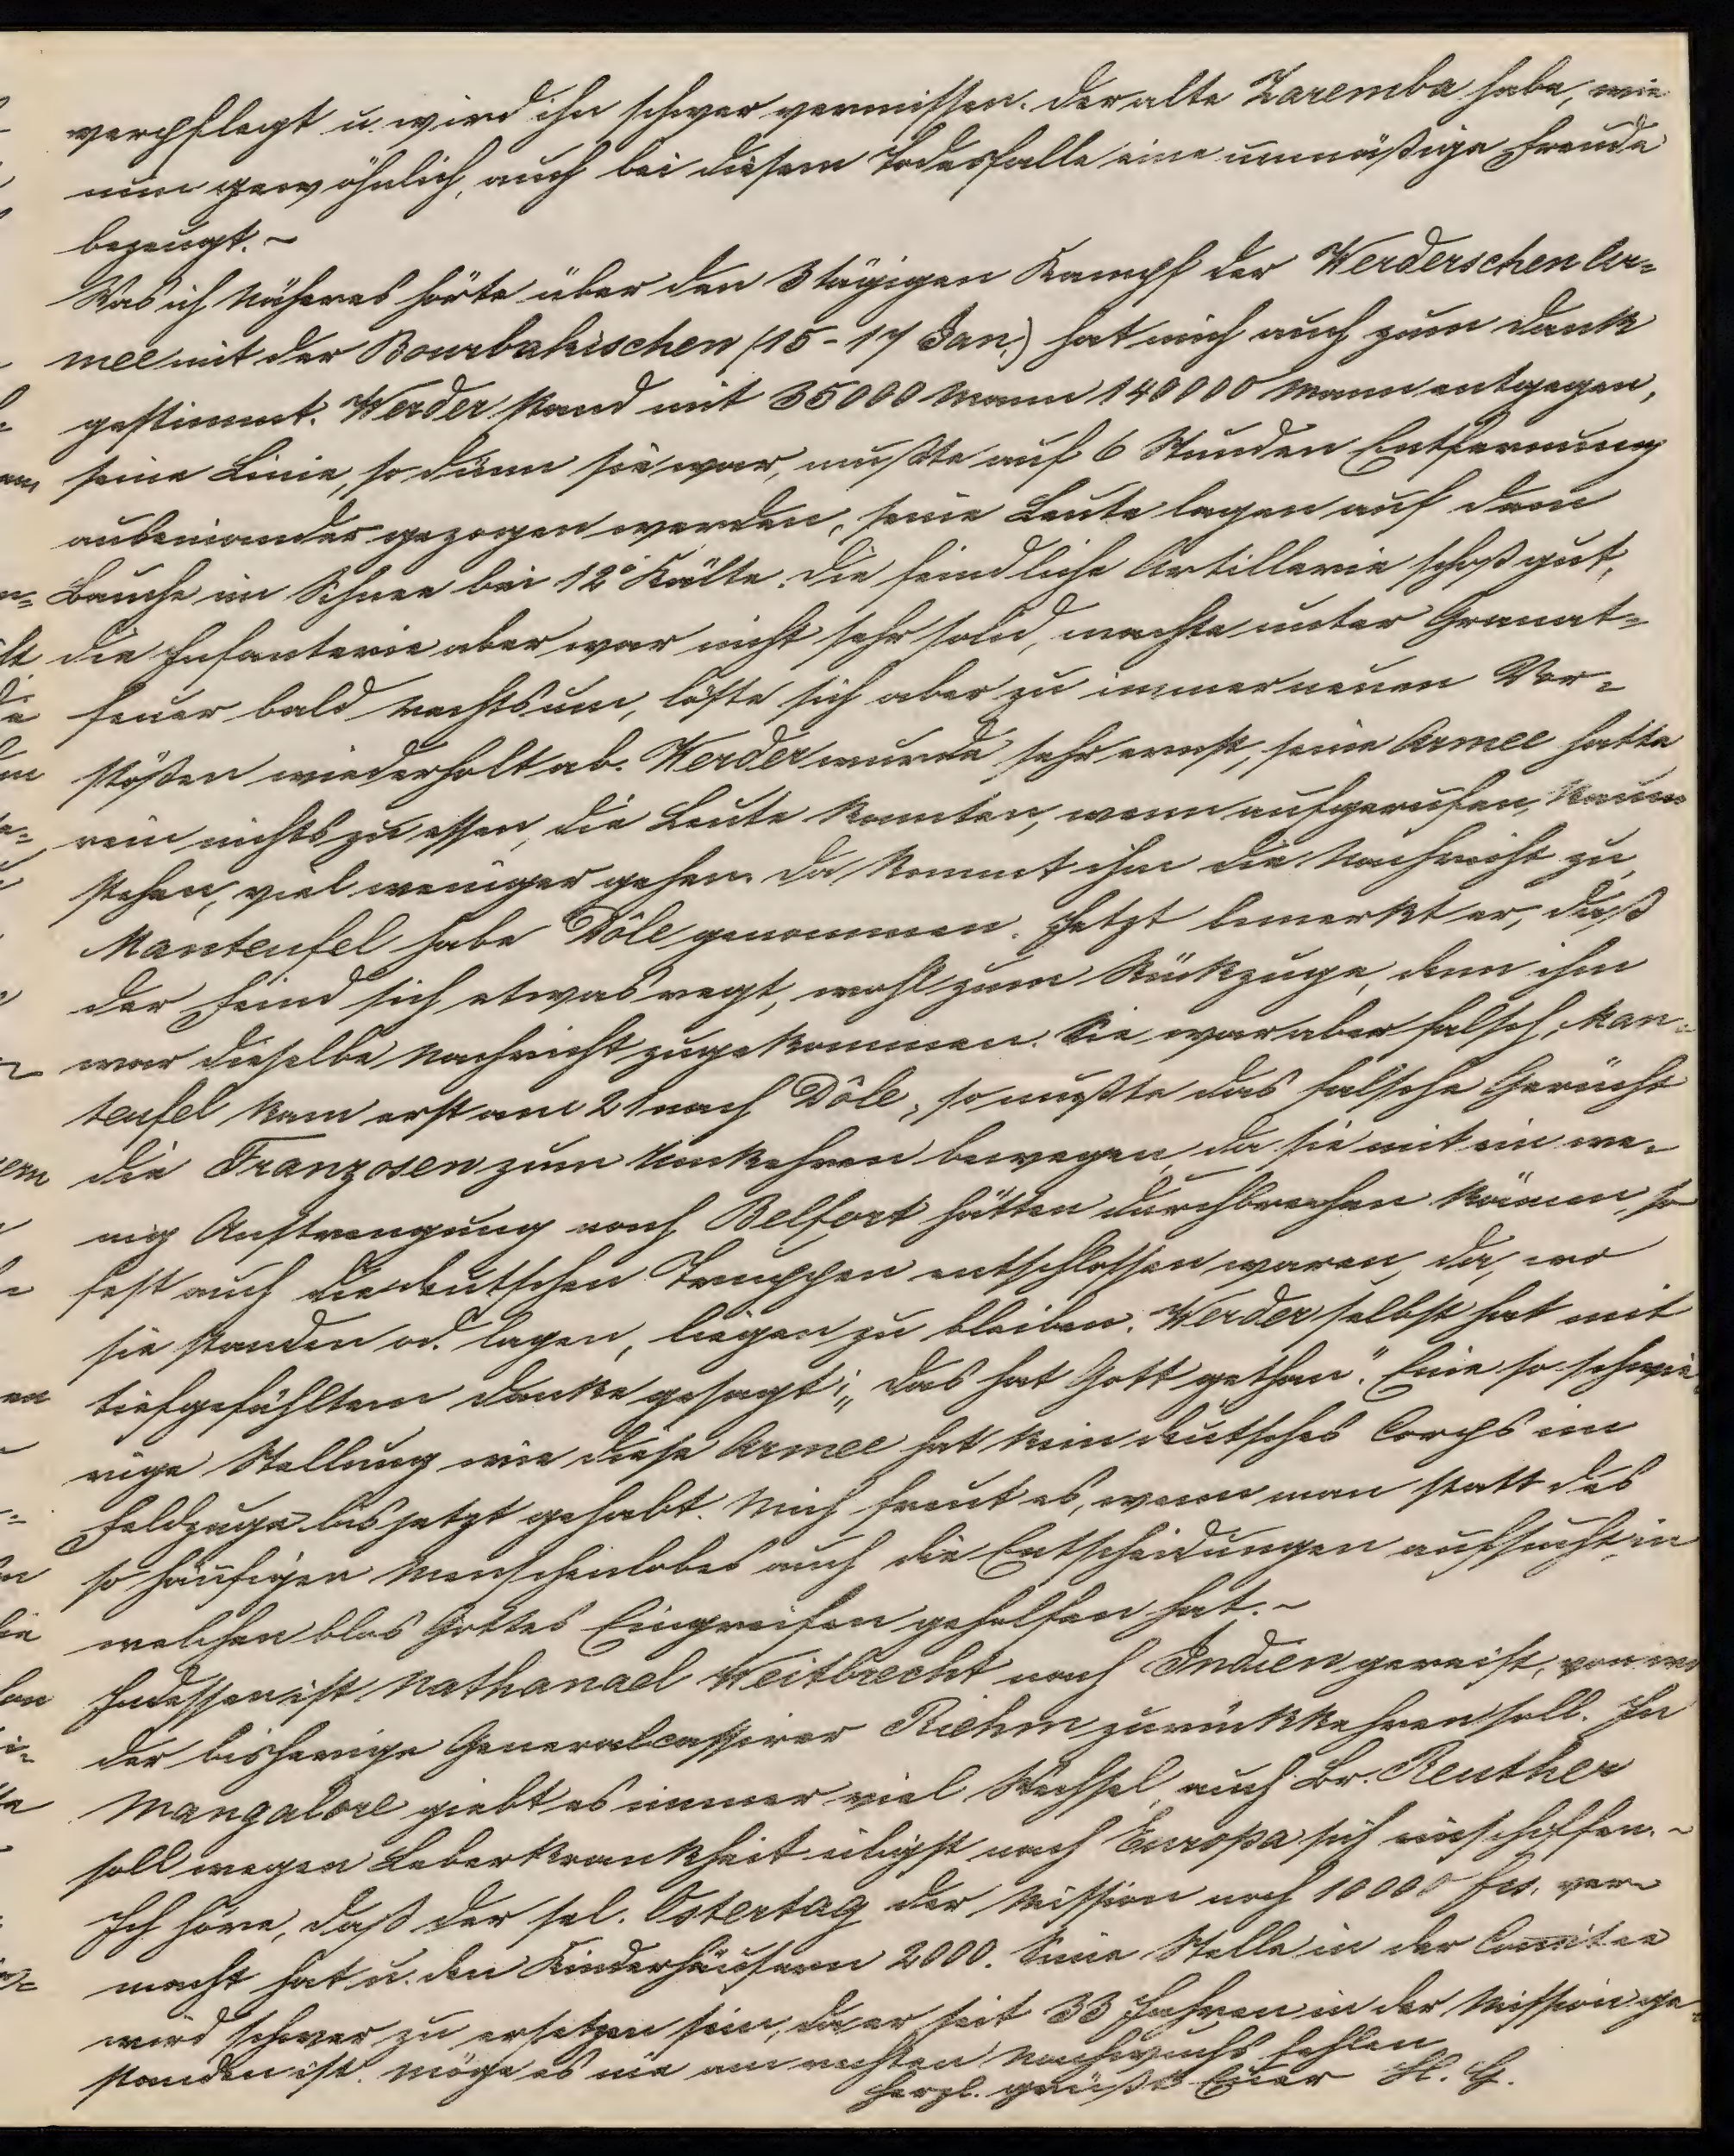 verpflegt u. wird ihn schwer vermissen. Der alte Zaremba habe, wie
nun gewöhnlich, auch bei diesem Todesfalle eine unmäßige Freude
bezeugt. ~
Was ich Näheres hörte über den 3tägigen Kampf der Werderschen Ar=
mee mit der Bourbakischen (15-17 Jan.) hat mich auch zum Dank
gestimmt. Werder stand mit 35000 Mann 140000 Mann entgegen,
seine Linie, so dünn sie war, mußte auf 6 Stunden Entfernung
auseinander gezogen werden, seine Leute lagen auf dem
Bauche im Schnee bei 12° Kälte. Die feindliche Artillerie schoß gut,
die Infanterie aber war nicht sehr solid, machte unter Granat=
feuer bald rechtsum, löste sich aber zu immer neuen Vor=
stößen wiederholt ab. Werder wurde sehr ernst, seine Armee hatte
rein nichts zu essen, die Leute konnten, wenn aufgerufen, kaum
stehen, viel weniger gehen. Da kommt ihm die Nachricht zu,
Manteufel habe Dôle genommen. Jetzt bemerkt er, daß
der Feind sich etwas regt, wohl zum Rückzuge, denn ihm
war dieselbe Nachricht zugekommen. Sie war aber falsch, Man=
teufel kam erst am 21 nach Dôle, so mußte das falsche Gerücht
die Franzosen zum Umkehren bewegen, da sie mit ein we=
nig Anstrengung nach Belfort hätten durchbrechen können, so
fest auch die deutschen Truppen entschlossen waren, da, wo
sie standen od. lagen, liegen zu bleiben. Werder selbst hat mit
tiefgefühltem Danke gesagt: „Das hat Gott gethan." Eine so schwie=
rige Stellung wie diese Armee hat kein deutsches Corps im
Feldzuge bis jetzt gehabt. Mich freut es, wenn man statt des
so häufigen Menschenlobes auch die Entscheidungen aufsucht, in
welchen blos Gottes Eingreifen geholfen hat. ~
Indessen ist Nathanael Weitbrecht nach Indien gereist, von wo
der bisherige Generalcassirer Riehm zurückkehren soll. In
Mangalore giebt es immer viel Wechsel, auch Br. Reuther
soll wegen Leberkrankheit eiligst nach Europa sich einschiffen. ~
Ich höre, daß der sel. Ostertag der Mission noch 10000 frs. ver=
macht hat u. den Kinderhäusern 2000. Seine Stelle in der Comitee
wird schwer zu ersetzen sein, da er seit 33 Jahren in der Mission ge=
standen ist. Möge es nie am rechten Nachwuchs fehlen
Herzl. grüßt Euer H. G.